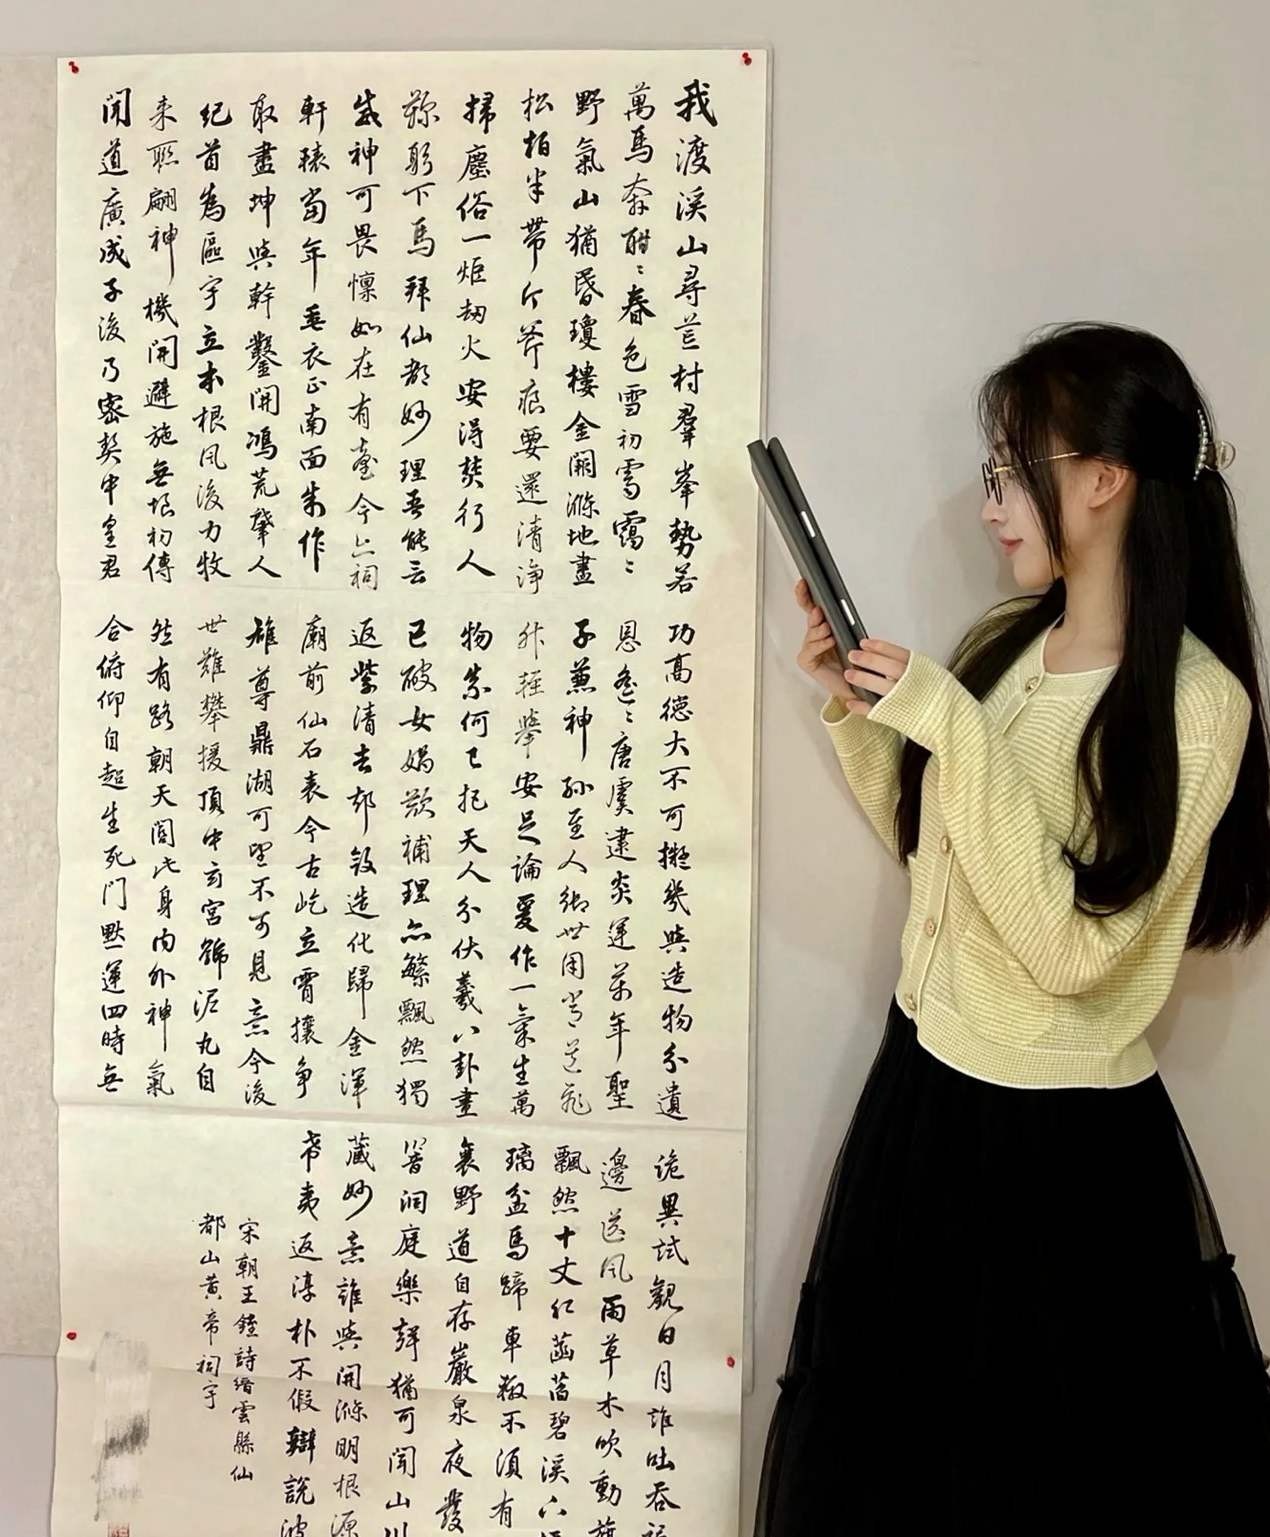 我渡溪山尋芒村羣峯勢若
萬馬奔酣〻春色雪初霽靄〻
野氣山猶昏瓊樓金闕滌地盡
松柏半帶斤斧痕要還清淨
掃塵俗一炬劫火安得焚行人
鞠躬下馬拜仙都妙理吾能云
威神可畏懍如在有臺今亡祠
軒轅當年垂衣正南面制作
取盡坤與乾鑿開鴻荒肇人
紀首為區宇立本根風後力牧
来聯翩神機開避施無垠初傳
聞道廣成子後乃密契中皇君
功高德大不可擬幾與造物分遺
恩遙〻唐虞逮炎運萬年聖
子兼神孫至人御世閒道飛
升輕舉安足論爰作一氣生萬
物何已天人分伏羲八卦畫
已破女媧欲補理亦繁飄然獨
返紫清去却斂造化歸金渾
廟前仙石表今古屹立霄攘爭
雄尊鼎湖可望不可見意今後
世難攀援頂中玄宮號泥丸自
然有路朝天閽此身內外神氣
合俯仰自超生死門默運四時無
詭異試觀日月誰吐吞
邊送風雨草木吹動
飄然十丈紅菡萏碧溪
璃盆馬蹄車轍不須有
襄野道自存巖泉夜發
洞庭樂聲猶可聞山川
藏妙意誰與開滌明根源
希夷返淳朴不假辯說波
宋朝王銍詩縉雲縣仙
都山黃帝祠宇